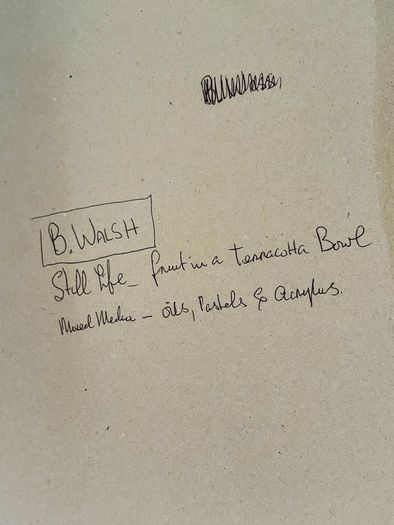 B. WALSH
Still life - fruit in a terracotta Bowl
Mixed Media - oils, Pastels & Acrylics.